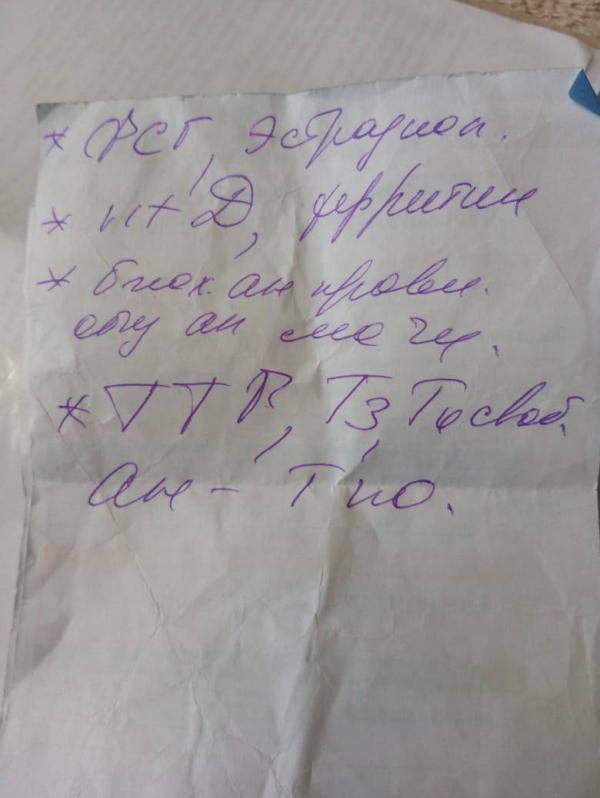 * ФСГ, Эстрадиол.
* вит Д, ферритин
* биох. ан крови.
общ ан мочи.
* ТТГ, Т3, Т4 свob.
Ан - ТПО.